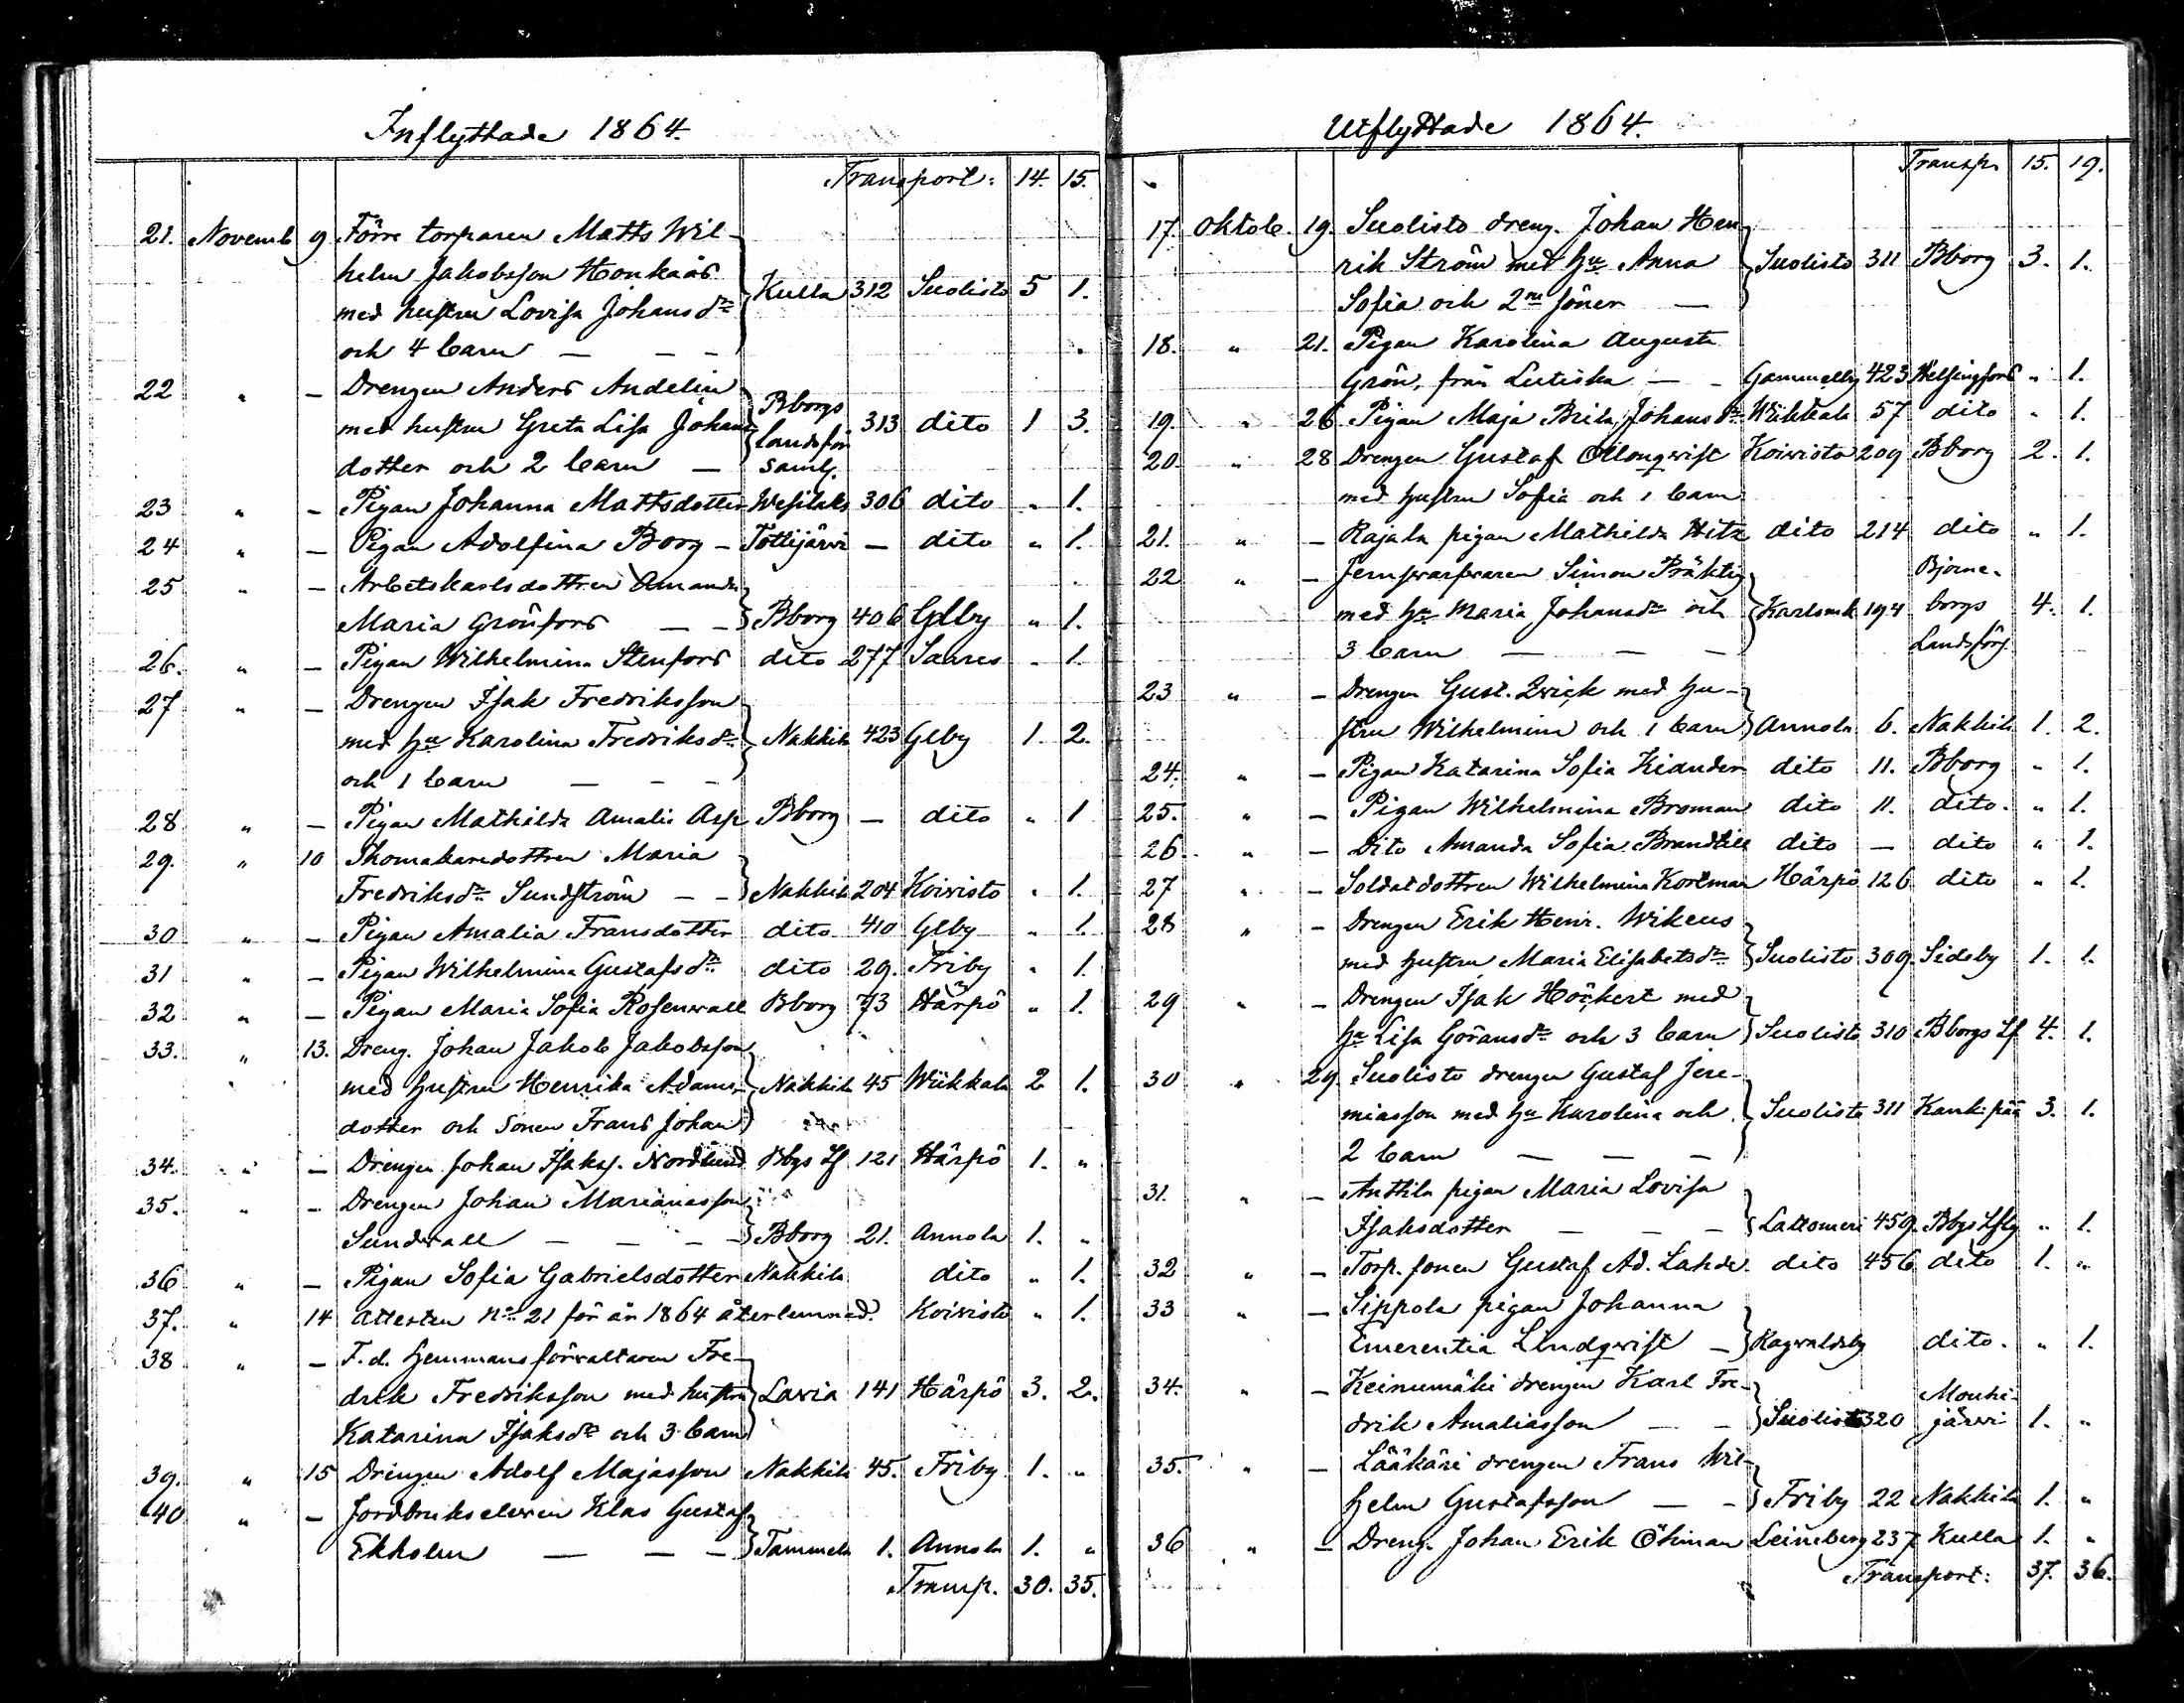 Inflyttade 1864.
Transport: 14. 15.
21. Novemb 9 Förre torparen Matts Wil-
helm Jakobsson Honkaås
med hustru Lovisa Johansdr Kulla 312 Suolisto 5 1.
och 4 barn — — —
22 " — Drengen Anders Andelin
med hustru Greta Lisa Johans- Bborgs landsför saml. 313 dito 1 3.
dotter och 2 barn —
23 " — Pigan Johanna Mattsdotter Wesilaks 306 dito " 1.
24 " — Pigan Adolfina Borg — Tottijärvi — dito " 1.
25 " — Arbetskarlsdottren Amanda
Maria Grönfors — — Bborg 406 Glby " 1.
26. " — Pigan Wilhelmina Stenfors dito 277 Saares " 1.
27 " — Drengen Isak Fredriksson
med hu Karolina Fredriksdr Nakkila 423 Glby 1. 2.
och 1 barn — — —
28 " — Pigan Mathilda Amalia Asp Bborg — dito " 1
29. " 10 Skomakaredottren Maria
Fredriksdr Sundström — — Nakkila 204 Koivisto " 1.
30 " — Pigan Amalia Fransdotter dito 410 Glby " 1.
31 " — Pigan Wilhelmina Gustafsdr dito 29. Friby " 1.
32 " — Pigan Maria Sofia Rosenwall Bborg 73 Härpö " 1.
33. " 13. Dreng. Johan Jakob Jakobsson
med hustru Henrika Adams- Nakkila 45 Wiikkala 2 1.
dotter och Sonen Frans Johan
34. " — Drengen Johan Isaks. Nordlund Bbgs Lf 121 Härpö 1. "
35. " — Drengen Johan Mariansson
Sundvall — — — Bborg 21. Annola 1. "
36 " — Pigan Sofia Gabrielsdotter Nakkila dito " 1.
37. " 14 Attesten No 21 för år 1864 återlemnad. Koivisto " 1.
38 " — F.d. Hemmansförvaltaren Fre-
drik Fredriksson med hustru Lavia 141 Härpö 3. 2.
Katarina Isaksdr och 3 barn
39. " 15 Drengen Adolf Majasson Nakkila 45. Friby 1. "
40 " — Jordbrukseleven Klas Gustaf
Ekholm — — — Tammela 1. Annola 1. "
Transp. 30. 35.
Utflyttade 1864.
Transp. 15. 19.
17. Oktob. 19. Suolisto dreng. Johan Hen-
rik Ström med hu Anna Suolisto 311 Bborg 3. 1.
Sofia och 2ne söner —
18. " 21. Pigan Karolina Augusta
Grön, från Lutiska — — Gammelby 423 Helsingfors " 1.
19. " 26 Pigan Maja Brita Johansdr Wiikkala 57 dito " 1.
20 " 28 Drengen Gustaf Öllonqvist Koivisto 209 Bborg 2. 1.
med hustru Sofia och 1 barn
21. " — Rajala pigan Mathilda Witz dito 214 dito " 1.
22 " — Jernsvarfvaren Simon Präktig Björne-
med hu Maria Johansdr och Karlsmk 194 borgs 4. 1.
3 barn — — — Landsförs.
23 " — Drengen Gust. Qvick med hu-
stru Wilhelmina och 1 barn Annola 6. Nakkila 1. 2.
24. " — Pigan Katarina Sofia Kiander dito 11. Bborg " 1.
25. " — Pigan Wilhelmina Broman dito 11. dito. " 1.
26. " — Dito Amanda Sofia Brandtill dito — dito " 1.
27 " — Soldatdottren Wilhelmina Kortman Härpö 126 dito " 1.
28 " — Drengen Erik Henr. Wikeus
med hustru Maria Elisabetsdr Suolisto 309. Sideby 1. 1.
29 " — Drengen Isak Höckert med
hu Lisa Göransdr och 3 barn Suolisto 310 Bborgs Lf 4. 1.
30 " 29 Suolisto drengen Gustaf Jere-
miasson med hu Karolina och Suolisto 311 Kank:pää 3. 1.
2 barn — — —
31. " — Anttila pigan Maria Lovisa
Isaksdotter — — — Lattomeri 459. Bbgs Lfsg " 1.
32 " — Torp. sonen Gustaf Ad. Lahde. dito 456 dito 1. "
33 " — Sippola pigan Johanna
Emerentia Lindqvist — Ragvaldsby dito. " 1.
34. " — Keinumäki drengen Karl Fre- Mouhi-
drik Amaliasson — — Suolisto 320 järvi 1. "
35. " — Lääkäri drengen Frans Wil-
helm Gustafsson — — Friby 22 Nakkila 1. "
36 " — Dreng. Johan Erik Öhman Leineberg 237 Kulla 1. "
Transport: 37. 36.